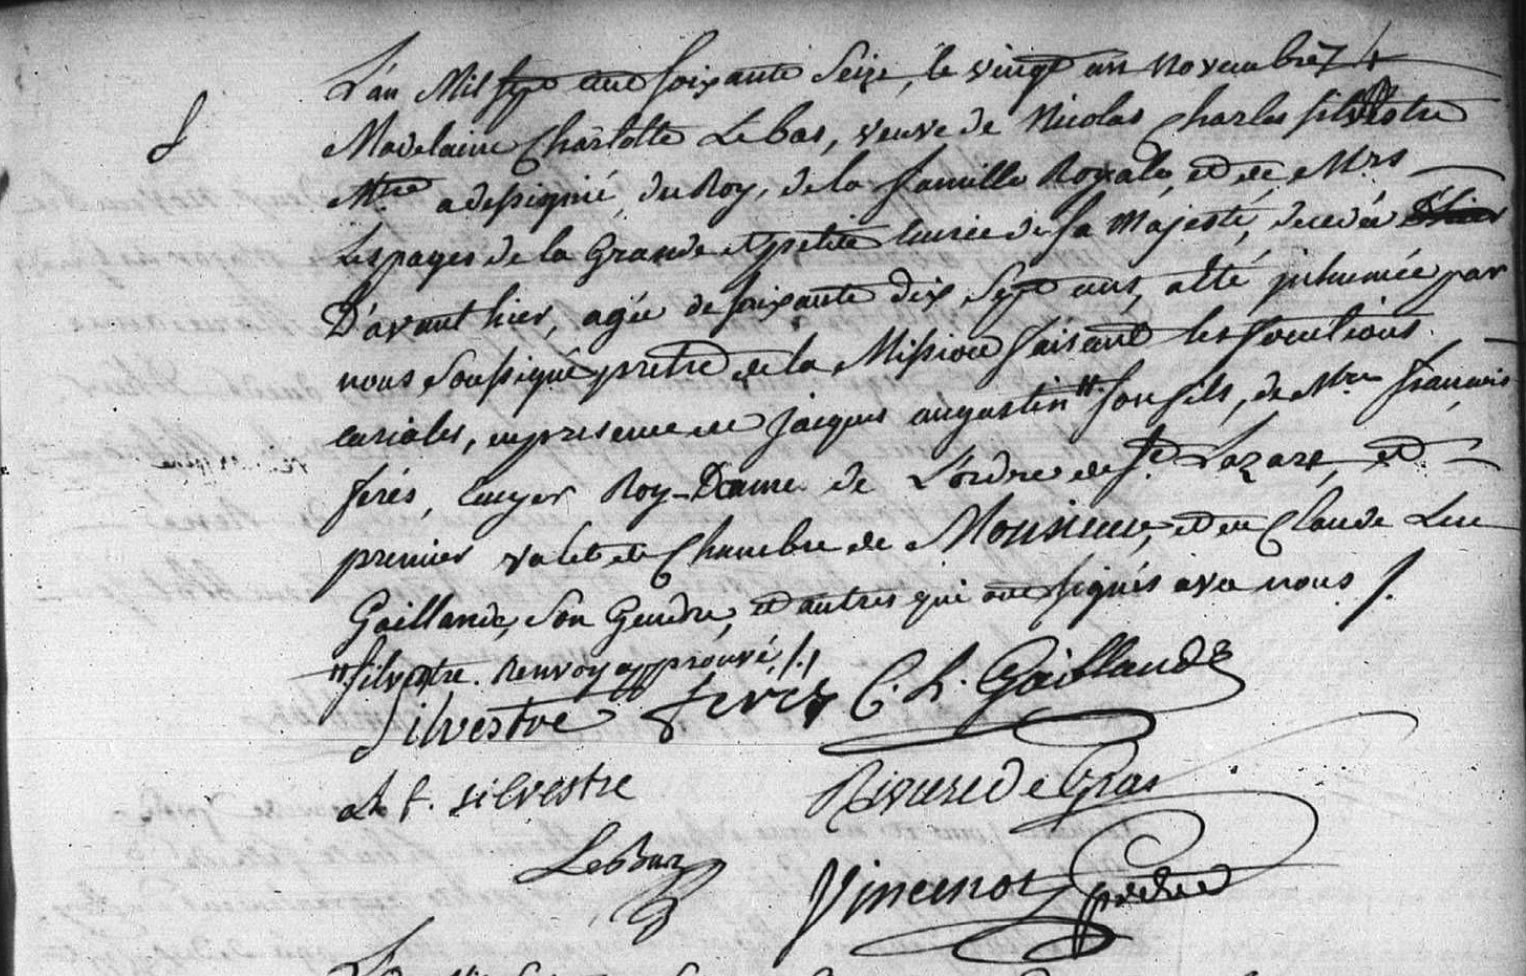 L'an Mil sept cent soixante Seize, le vingt un Novembre
Madelaine Charlotte Lebas, veuve de Nicolas Charles silvestre
Mtre a dessigné, du Roy, de la famille Royale, et de Mrs
Les pages de la Grande et petite Ecurie de sa Majesté, decedée
D'avant hier, agée de soixante dix Sept ans, a été inhumée par
nous soussigné pretre de la Mission faisant les fonctions
curiales, en presence de jacques augustin # son fils, de Mtre françois
ferés, Ecuyer Roy-Dame de L'ordre de St. Lazare, et
premier valet de Chambre de Monsieur, et de Claude Luc
Gaillande, son Gendre, et autres qui ont signés avec nous /.
# silvestre. Renvoy approuvé /./
Silvestre ferés C. L. Gaillande
f. silvestre
de Gras
LeBas
Vincenot pretre